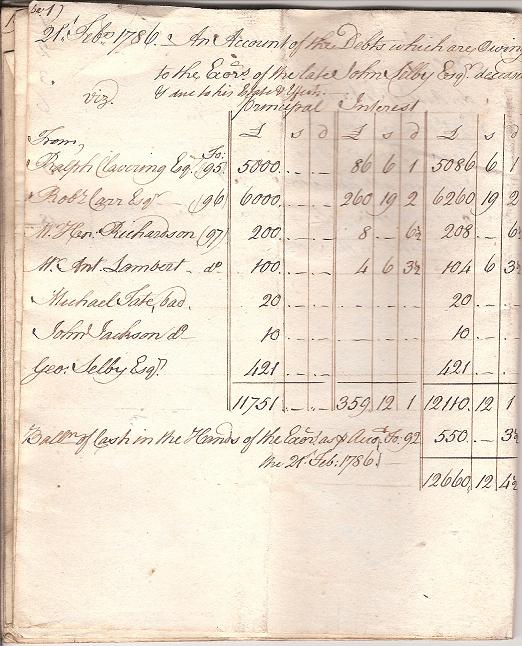 21st Febry 1786. An Account of the Debts which are Owing
to the Exors of the late John Selby Esqr. deceas
viz. & due to his Estate & Effects
Principal Interest
£ s d £ s d £ s d
From, Fo:
Ralph Clavering Esq. (95) 5000 .. .. 86 6 1 5086 6 1
Robt. Carr Esqr (96) 6000 .. .. 260 19 2 6260 19 2
Mr. Hen: Richardson (97) 200 .. .. 8 .. 6½ 208 .. 6½
Mr. Ant. Lambert do. 100 .. .. 4 6 3½ 104 6 3½
Michael Tate, bad. 20 .. .. 20 .. ..
John Jackson do 10 .. .. 10 .. ..
Geo: Selby Esqr. 421 .. .. 421 .. ..
11751 .. .. 359 12 1 12110 12 1
Ballce. of Cash in the Hands of the Exors as Acct. Fo: 92 550 .. 3½
the 21st Feb: 1786
12660 12 4½